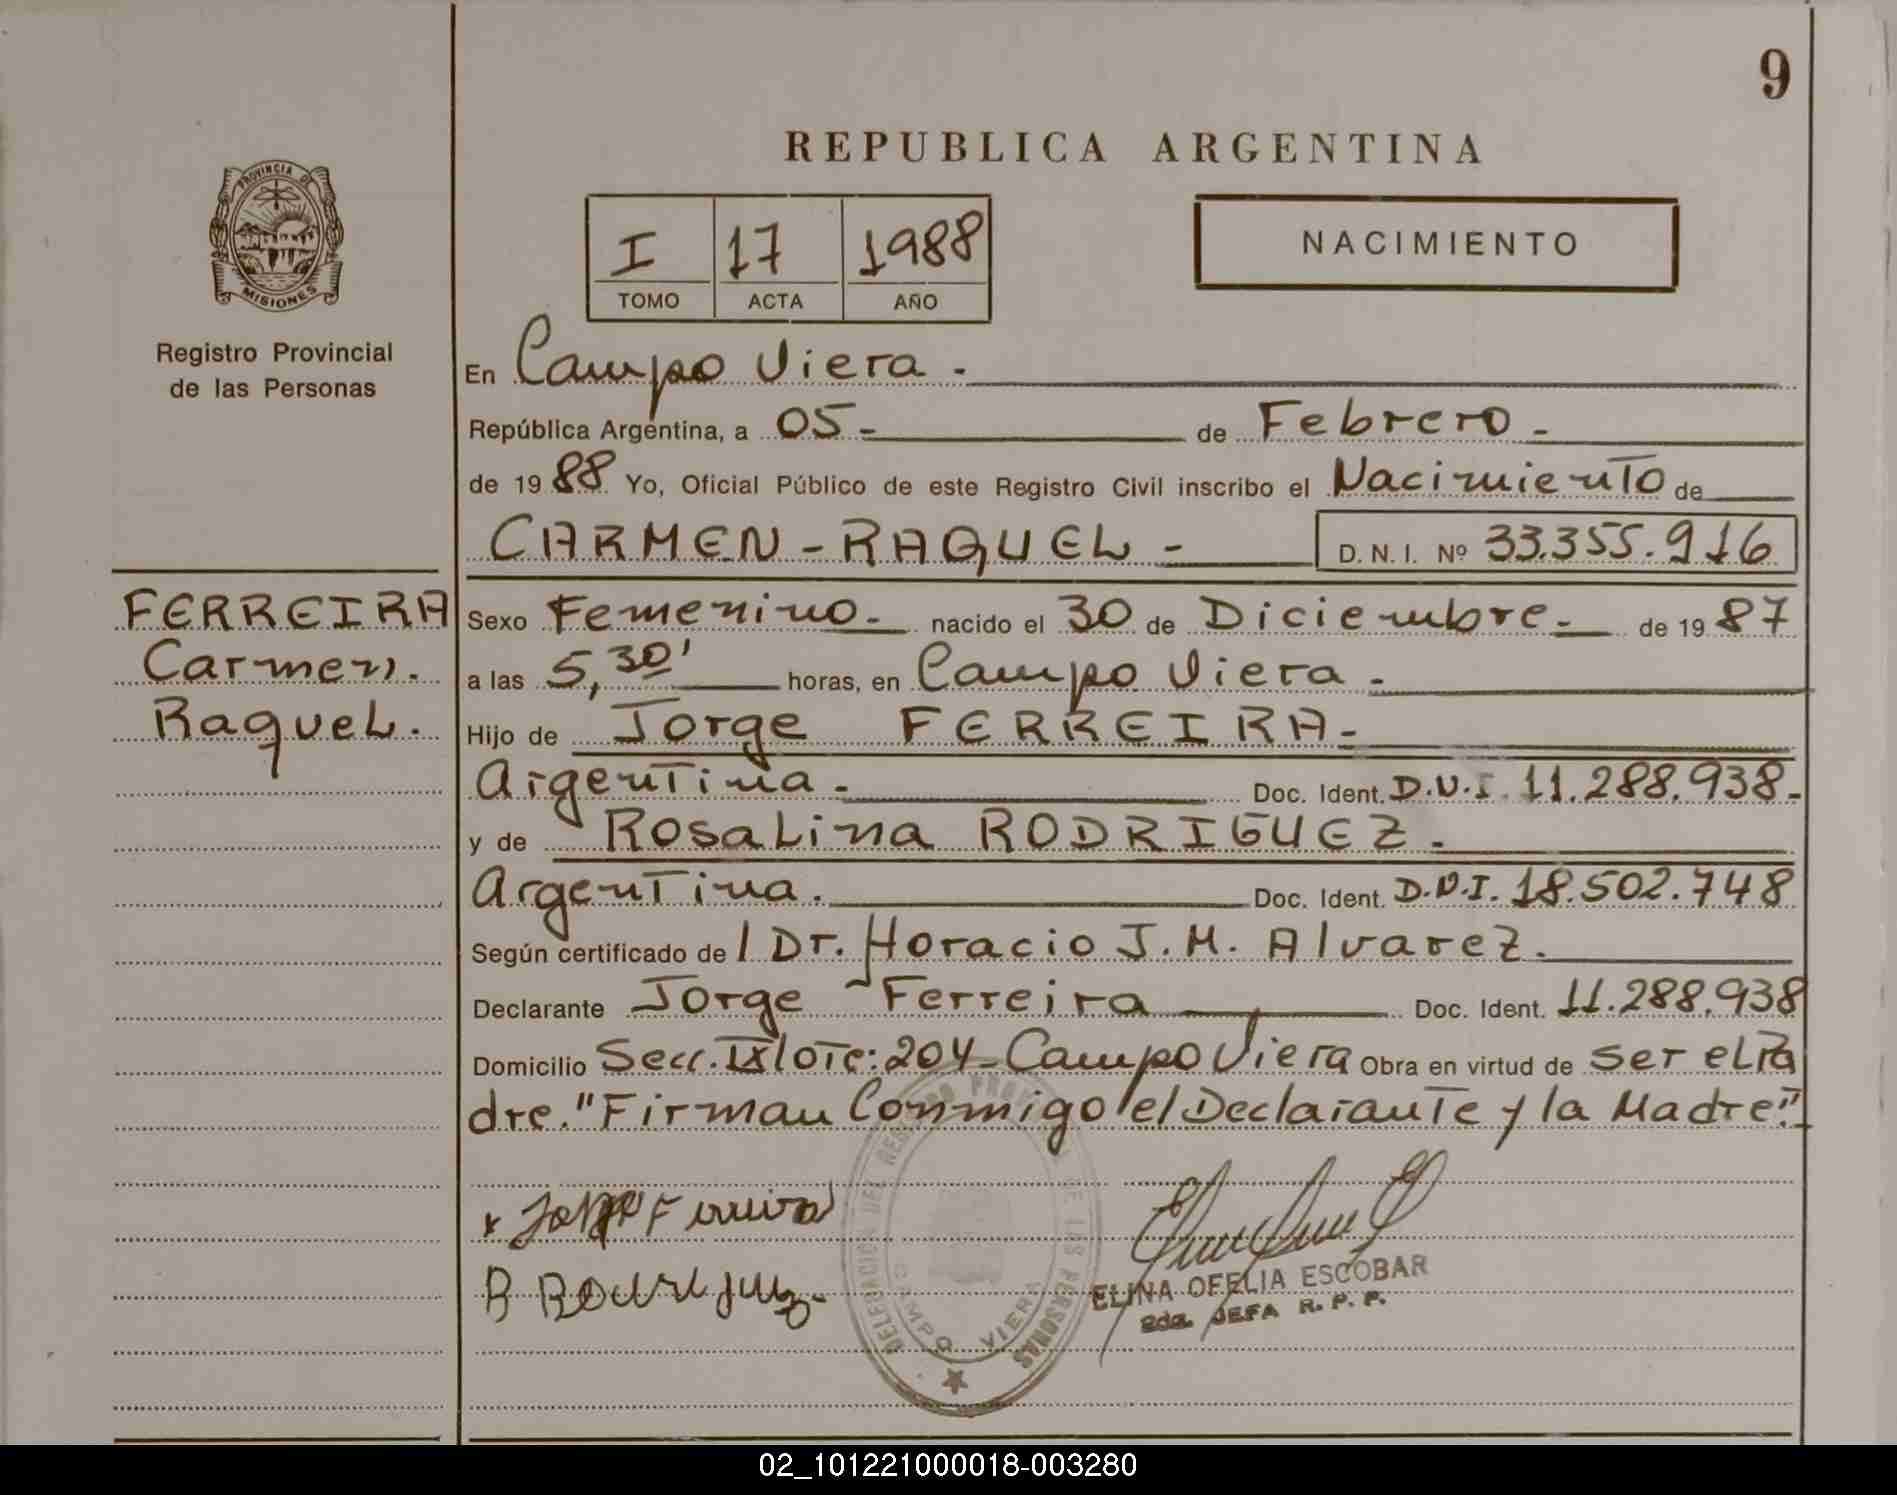 9
REPUBLICA ARGENTINA
PROVINCIA DE
MISIONES
Registro Provincial
de las Personas
I 17 1988
TOMO ACTA AÑO
NACIMIENTO
En Campo Viera.
República Argentina, a 05- de Febrero-
de 1988 Yo, Oficial Público de este Registro Civil inscribo el Nacimiento de
CARMEN-RAQUEL- D. N. I. Nº 33.355.916
FERREIRA
Carmen.
Raquel.
Sexo Femenino- nacido el 30 de Diciembre- de 1987
a las 5,30' horas, en Campo Viera-
Hijo de Jorge FERREIRA-
Argentina- Doc. Ident. D.N.I. 11.288.938-
y de Rosalina RODRIGUEZ.
Argentina. Doc. Ident. D.N.I. 18.502.748
Según certificado de l Dr. Horacio J. M. Alvarez.
Declarante Jorge Ferreira Doc. Ident. 11.288.938
Domicilio Secc. IX lote: 204- Campo Viera Obra en virtud de ser el Pa
dre. "Firman Conmigo el Declarante y la Madre"
DELEGACION DEL REGISTRO PROVINCIAL DE LAS PERSONAS
CAMPO VIERA
x Jorge Ferreira
R Rodriguez-
ELINA OFELIA ESCOBAR
2da. JEFA R. P. P.
02_101221000018-003280